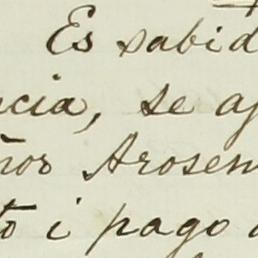 Es sabid
ncia, se ap
ñor Arosem
to i pago d